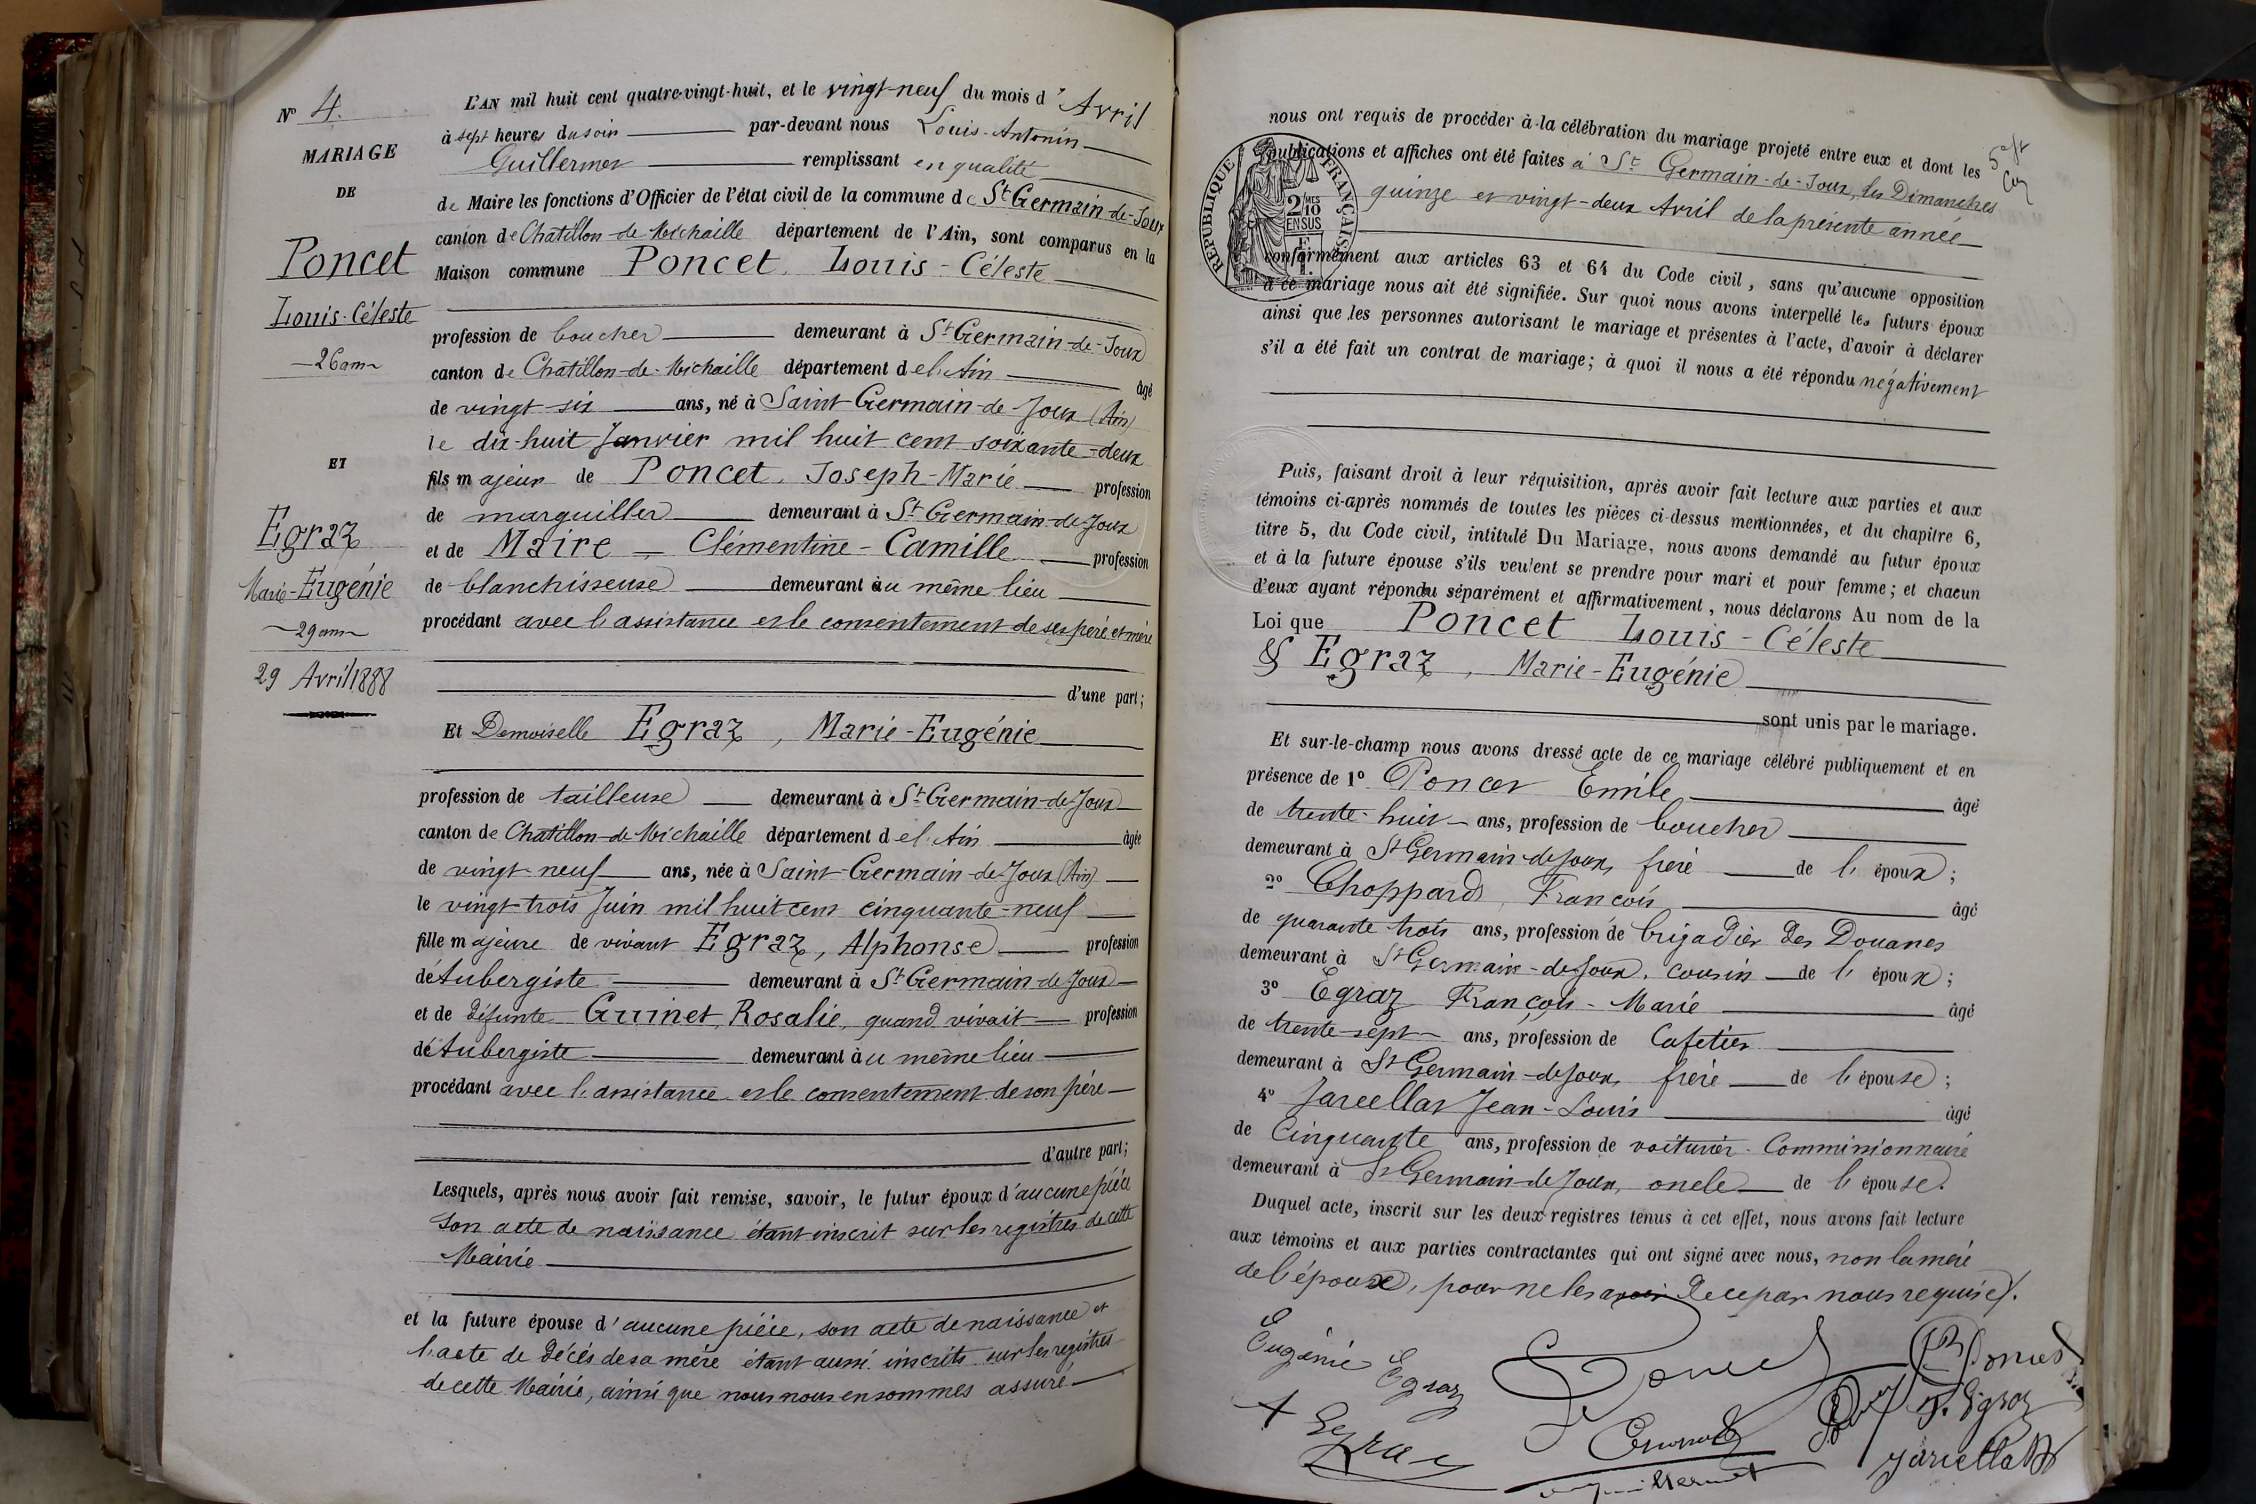 N° 4.
MARIAGE
DE
Poncet
Louis-Céleste
26 ans
ET
Egraz
Marie-Eugénie
29 ans
29 Avril 1888
L'AN mil huit cent quatre-vingt-huit, et le vingt-neuf du mois d'Avril
à sept heures du soir par-devant nous Louis-Antonin
Guillermet remplissant en qualité
de Maire les fonctions d'Officier de l'état civil de la commune de St Germain-de-Joux
canton de Chatillon-de-Michaille département de l'Ain, sont comparus en la
Maison commune Poncet Louis-Céleste
profession de boucher demeurant à St Germain-de-Joux
canton de Chatillon-de-Michaille département de l'Ain âgé
de vingt-six ans, né à Saint-Germain-de-Joux (Ain)
le dix-huit Janvier mil huit cent soixante-deux
fils majeur de Poncet, Joseph-Marie profession
de marguiller demeurant à St Germain-de-Joux
et de Maire, Clémentine-Camille profession
de blanchisseuse demeurant au même lieu
procédant avec l'assistance et le consentement de ses père et mère
d'une part;
Et Demoiselle Egraz, Marie-Eugénie
profession de tailleuse demeurant à St Germain-de-Joux
canton de Chatillon-de-Michaille département de l'Ain âgée
de vingt-neuf ans, née à Saint-Germain-de-Joux (Ain)
le vingt-trois Juin mil huit cent cinquante-neuf
fille majeure de vivant Egraz, Alphonse profession
d'Aubergiste demeurant à St Germain-de-Joux
et de défunte Guinet, Rosalie, quand vivait profession
d'Aubergiste demeurant au même lieu
procédant avec l'assistance et le consentement de son père
d'autre part;
Lesquels, après nous avoir fait remise, savoir, le futur époux d'aucune pièce
son acte de naissance étant inscrit sur les registres de cette
Mairie
et la future épouse d'aucune pièce, son acte de naissance et
l'acte de décès de sa mère étant aussi inscrits sur les registres
de cette Mairie, ainsi que nous nous en sommes assuré
nous ont requis de procéder à la célébration du mariage projeté entre eux et dont les
publications et affiches ont été faites à St Germain-de-Joux, les Dimanches
quinze et vingt-deux Avril de la présente année
RÉPUBLIQUE FRANÇAISE
2/10 MES
EN SUS
conformément aux articles 63 et 64 du Code civil, sans qu'aucune opposition
à ce mariage nous ait été signifiée. Sur quoi nous avons interpellé les futurs époux
ainsi que les personnes autorisant le mariage et présentes à l'acte, d'avoir à déclarer
s'il a été fait un contrat de mariage; à quoi il nous a été répondu négativement
Puis, faisant droit à leur réquisition, après avoir fait lecture aux parties et aux
témoins ci-après nommés de toutes les pièces ci-dessus mentionnées, et du chapitre 6,
titre 5, du Code civil, intitulé Du Mariage, nous avons demandé au futur époux
et à la future épouse s'ils veulent se prendre pour mari et pour femme; et chacun
d'eux ayant répondu séparément et affirmativement, nous déclarons Au nom de la
Loi que Poncet Louis-Céleste
& Egraz, Marie-Eugénie
sont unis par le mariage.
Et sur-le-champ nous avons dressé acte de ce mariage célébré publiquement et en
présence de 1° Poncet Emile âgé
de trente-huit ans, profession de boucher
demeurant à St Germain-de-Joux, frère de l'époux;
2° Choppard, François âgé
de quarante trois ans, profession de brigadier des Douanes
demeurant à St Germain-de-Joux, cousin de l'époux;
3° Egraz François-Marie âgé
de trente-sept ans, profession de Cafetier
demeurant à St Germain-de-Joux, frère de l'épouse;
4° Jarcellat Jean-Louis âgé
de Cinquante ans, profession de voiturier-Commissionnaire
demeurant à St Germain-de-Joux, oncle de l'épouse.
Duquel acte, inscrit sur les deux registres tenus à cet effet, nous avons fait lecture
aux témoins et aux parties contractantes qui ont signé avec nous, non la mère
de l'époux, pour ne les avoir de ce par nous requise.
Eugénie Egraz
Poncet
Poncet
Egraz
F. Egraz
Guillermet
Jarcellat